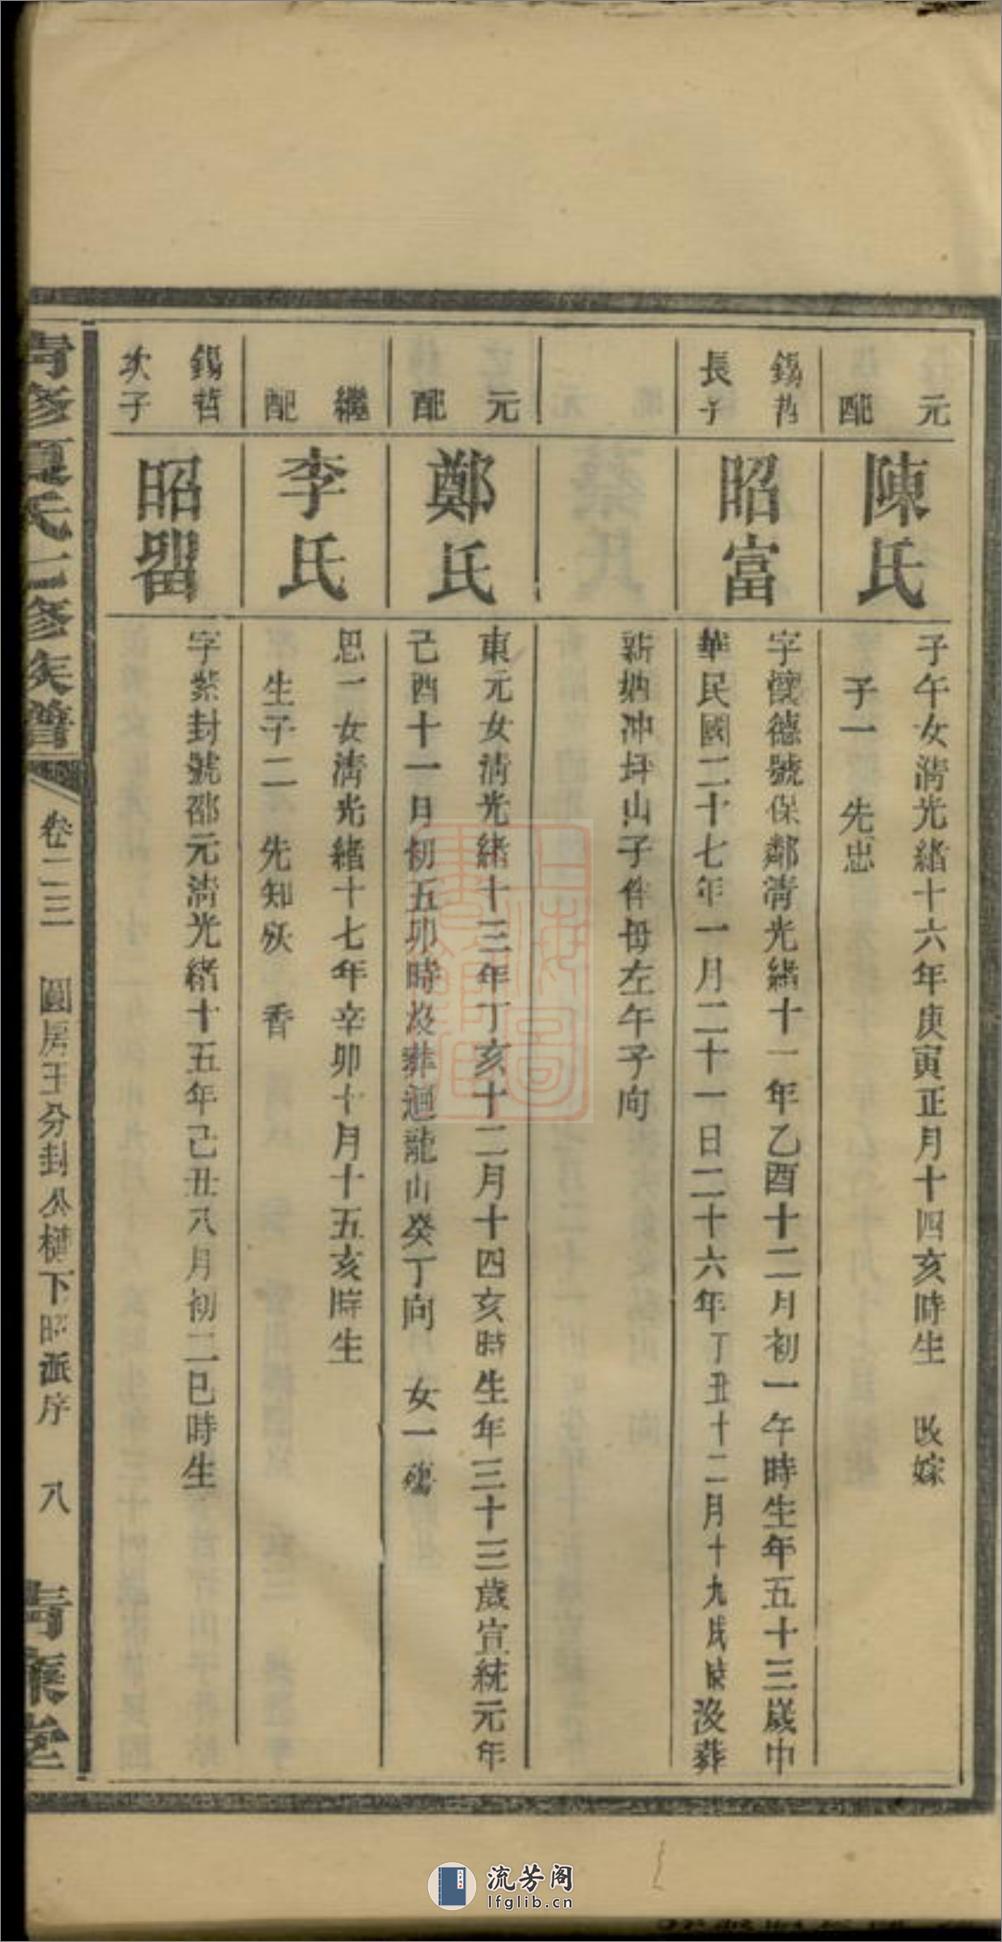 元配
陳氏
子午女清光緒十六年庚寅正月十四亥時生 改嫁
子一 先忠
錫哲長子
昭富
字懷德號保鄰清光緒十一年乙酉十二月初一午時生年五十三歲中
華民國二十七年一月二十一日二十六年丁丑十二月十九戌時沒葬
新塘冲坪山子伴母左午子向
元配
鄭氏
東元女清光緒十三年丁亥十二月十四亥時生年三十三歲宣統元年
己酉十一日初五卯時沒葬迴龍山癸丁向 女一殤
繼配
李氏
思一女清光緒十七年辛卯十月十五亥時生
生子二 先知 香
錫哲次子
昭
字紫封號邵元清光緒十五年己丑八月初二巳時生
修氏七修族譜
卷二三
圓房王分封公横下昭派序
八
堂
上海圖書館
流芳阁
lfglib.cn